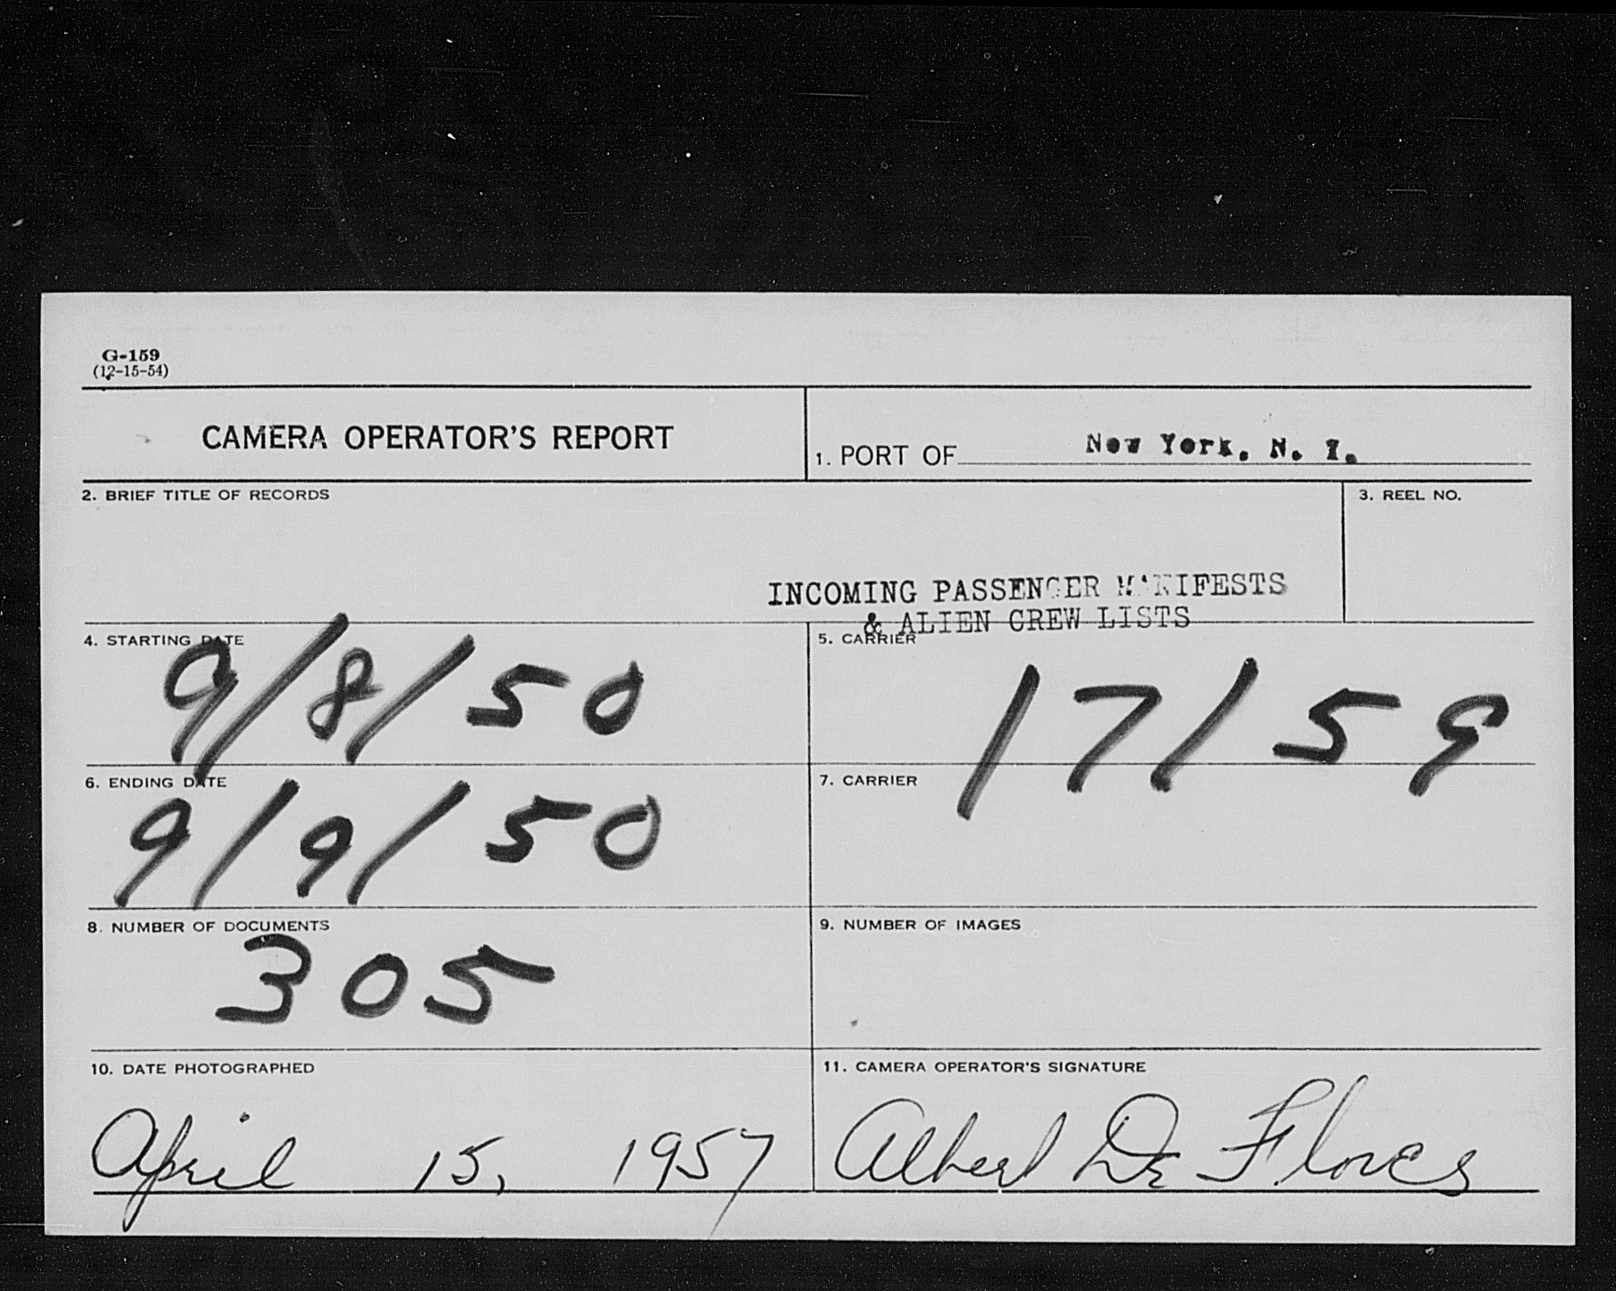 G-159
(12-15-54)
CAMERA OPERATOR'S REPORT
1. PORT OF New York, N. Y.
2. BRIEF TITLE OF RECORDS
3. REEL NO.
INCOMING PASSENGER MANIFESTS
& ALIEN CREW LISTS
4. STARTING DATE
9/8/50
5. CARRIER
17159
6. ENDING DATE
9/9/50
7. CARRIER
8. NUMBER OF DOCUMENTS
305
9. NUMBER OF IMAGES
10. DATE PHOTOGRAPHED
April 15, 1957
11. CAMERA OPERATOR'S SIGNATURE
Albert De Flores